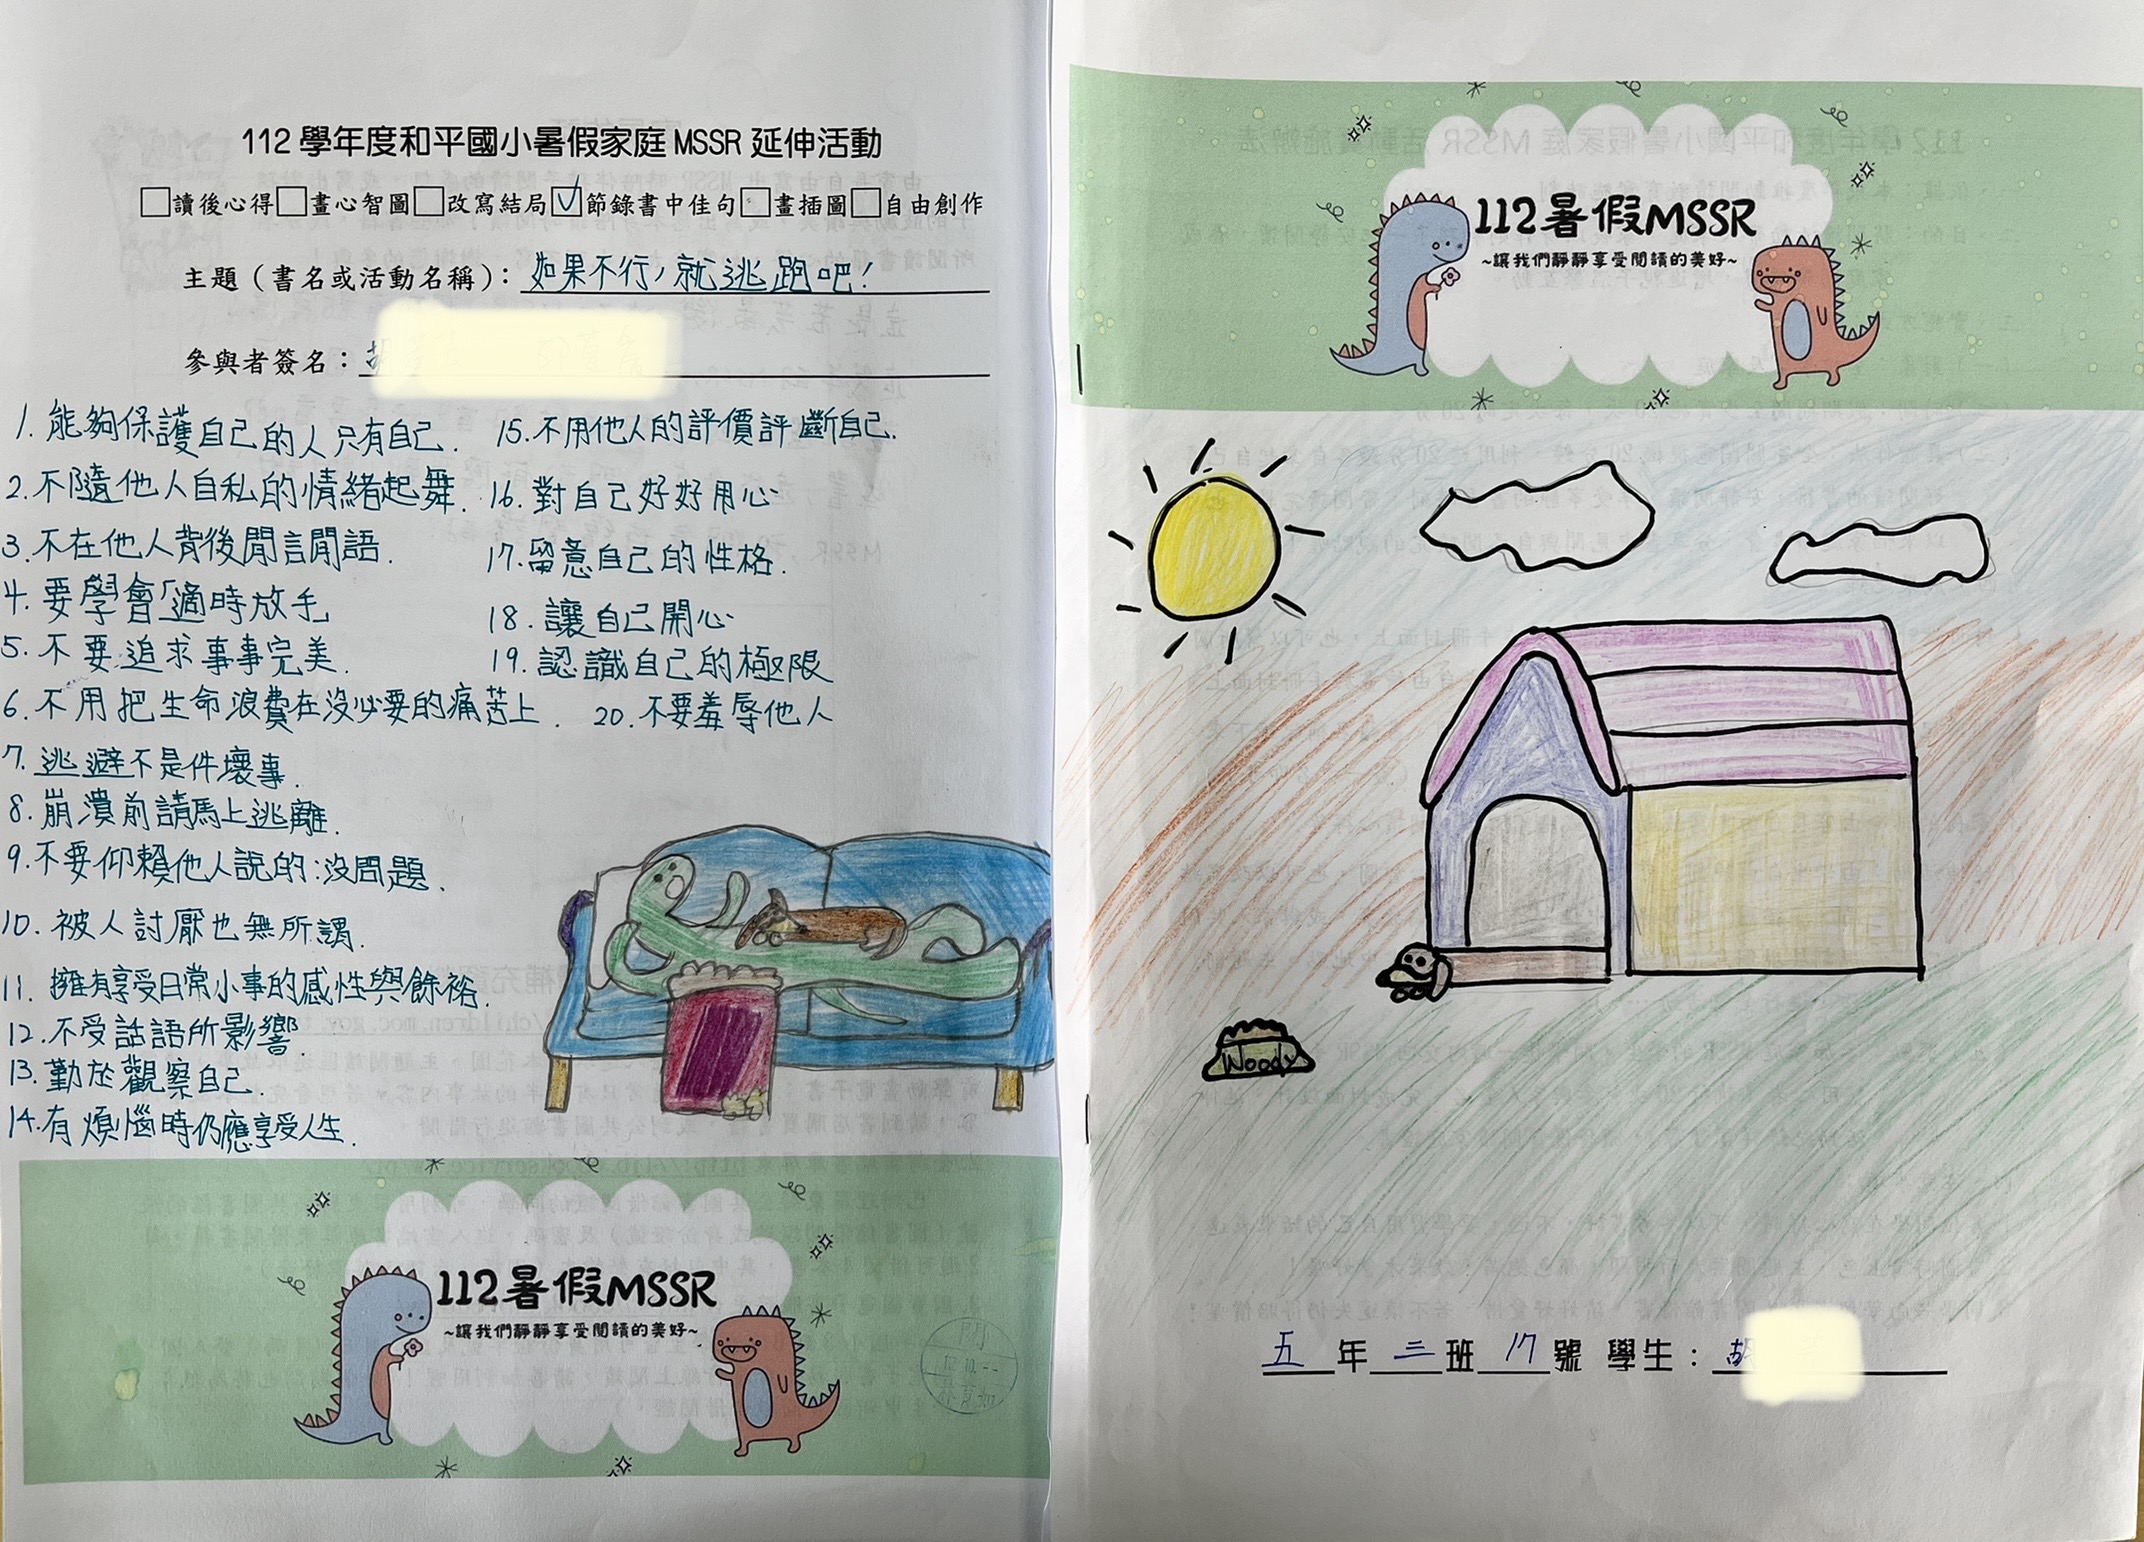 112 學年度和平國小暑假家庭 MSSR 延伸活動
□讀後心得□畫心智圖□改寫結局☑節錄書中佳句□畫插圖□自由創作
主題（書名或活動名稱）：如果不行，就逃跑吧！
參與者簽名：胡
1. 能夠保護自己的人只有自己.
2. 不隨他人自私的情緒起舞.
3. 不在他人背後閒言閒語.
4. 要學會「適時放手」
5. 不要追求事事完美.
6. 不用把生命浪費在沒必要的痛苦上.
7. 逃避不是件壞事.
8. 崩潰前請馬上逃離.
9. 不要仰賴他人說的:沒問題.
10. 被人討厭也無所謂.
11. 擁有享受日常小事的感性與餘裕.
12. 不受話語所影響
13. 勤於觀察自己.
14. 有煩惱時仍應享受人生.
15. 不用他人的評價評斷自己.
16. 對自己好好用心
17. 留意自己的性格.
18. 讓自己開心
19. 認識自己的極限
20. 不要羞辱他人
112暑假MSSR
~讓我們靜靜享受閱讀的美好~
112暑假MSSR
~讓我們靜靜享受閱讀的美好~
Woody
五年三班17號 學生：胡